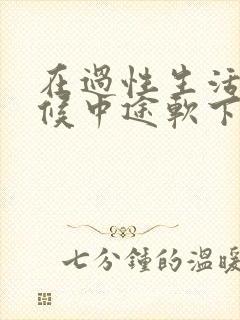 在過性生活
候中途軟下
七分鍾的溫暖